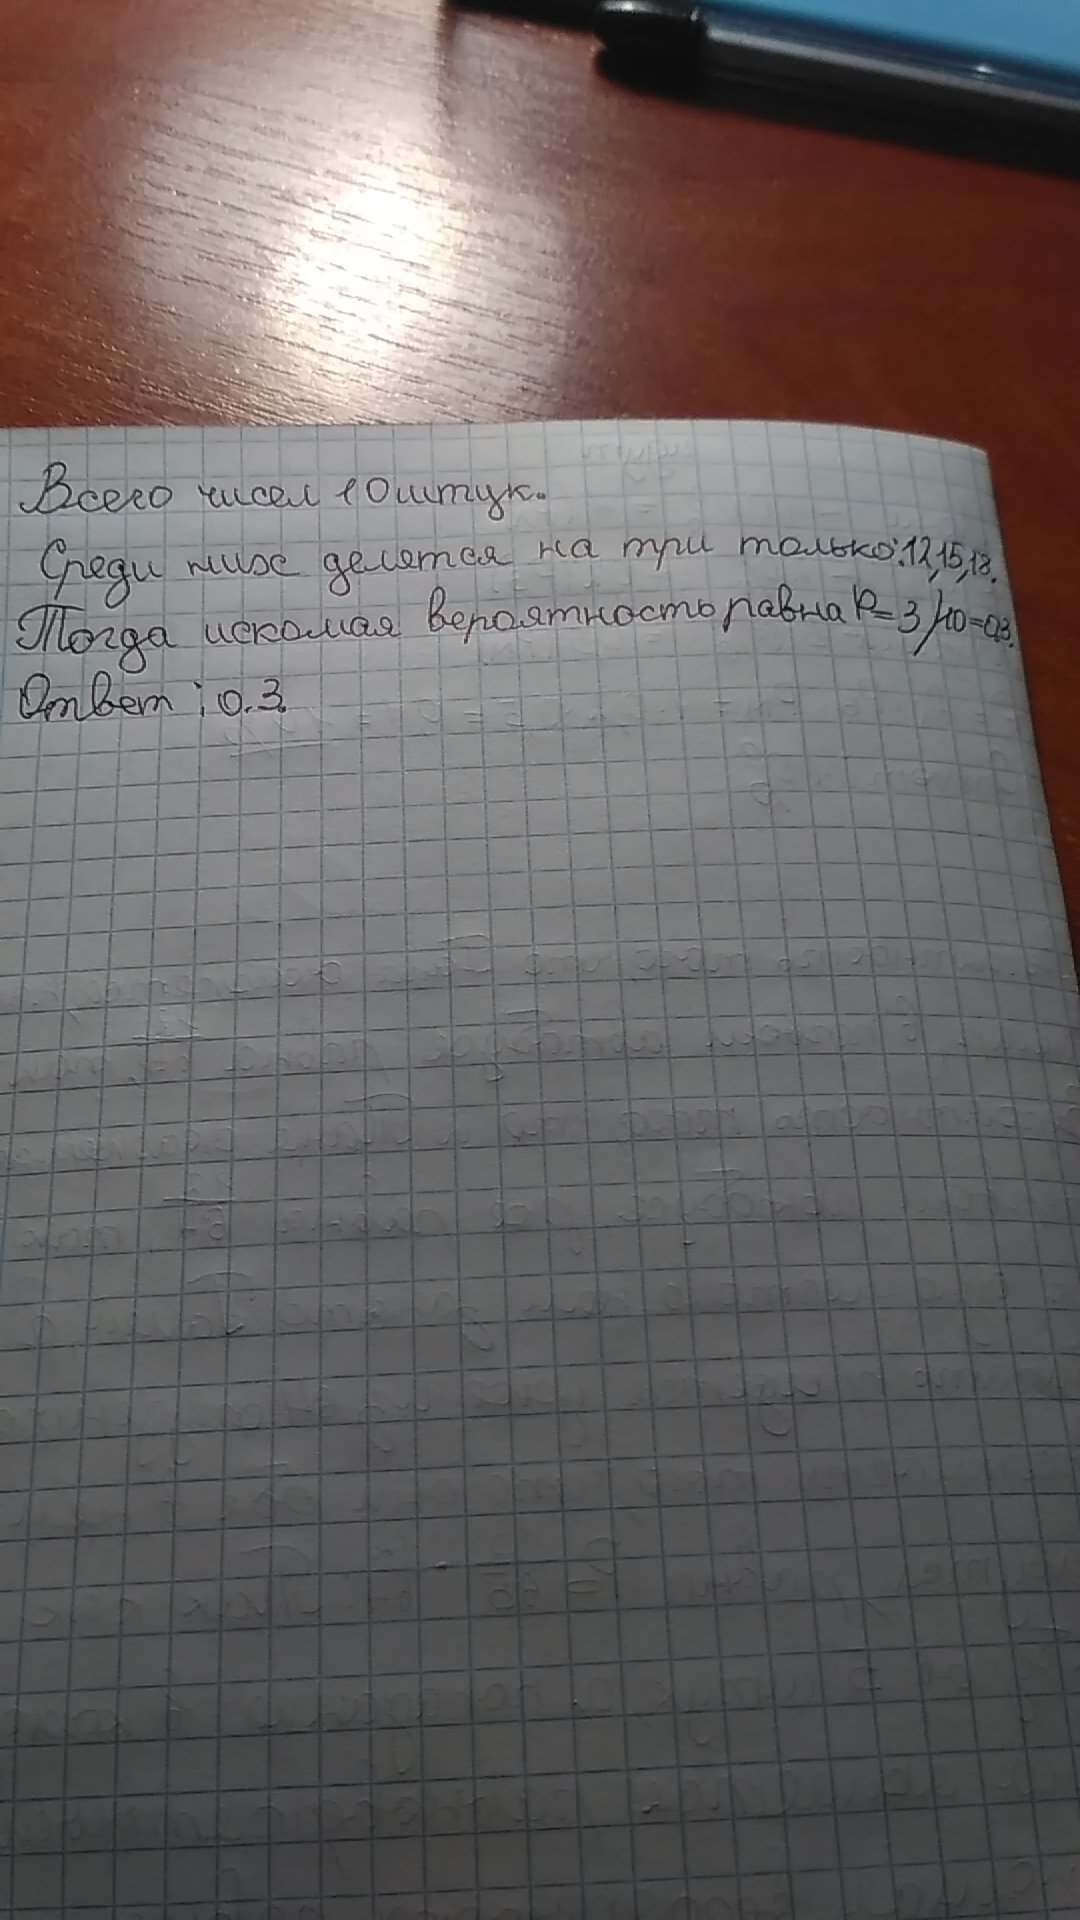 Всего чисел 10 штук.
Среди них делятся на три только: 12, 15, 18.
Тогда искомая вероятность равна P=3/10=0,3.
Ответ: 0.3.